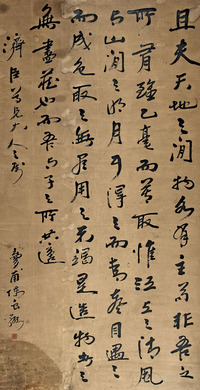 且夫天地之閒物各有主苟非吾之
所有雖乙毫而莫取惟江上之清風
与山閒之明月耳得之而為聲目遇之
而成色取之無禁用之不竭是造物者之
無盡藏也而吾与子之所共適
濟臣尊兄大人之屬